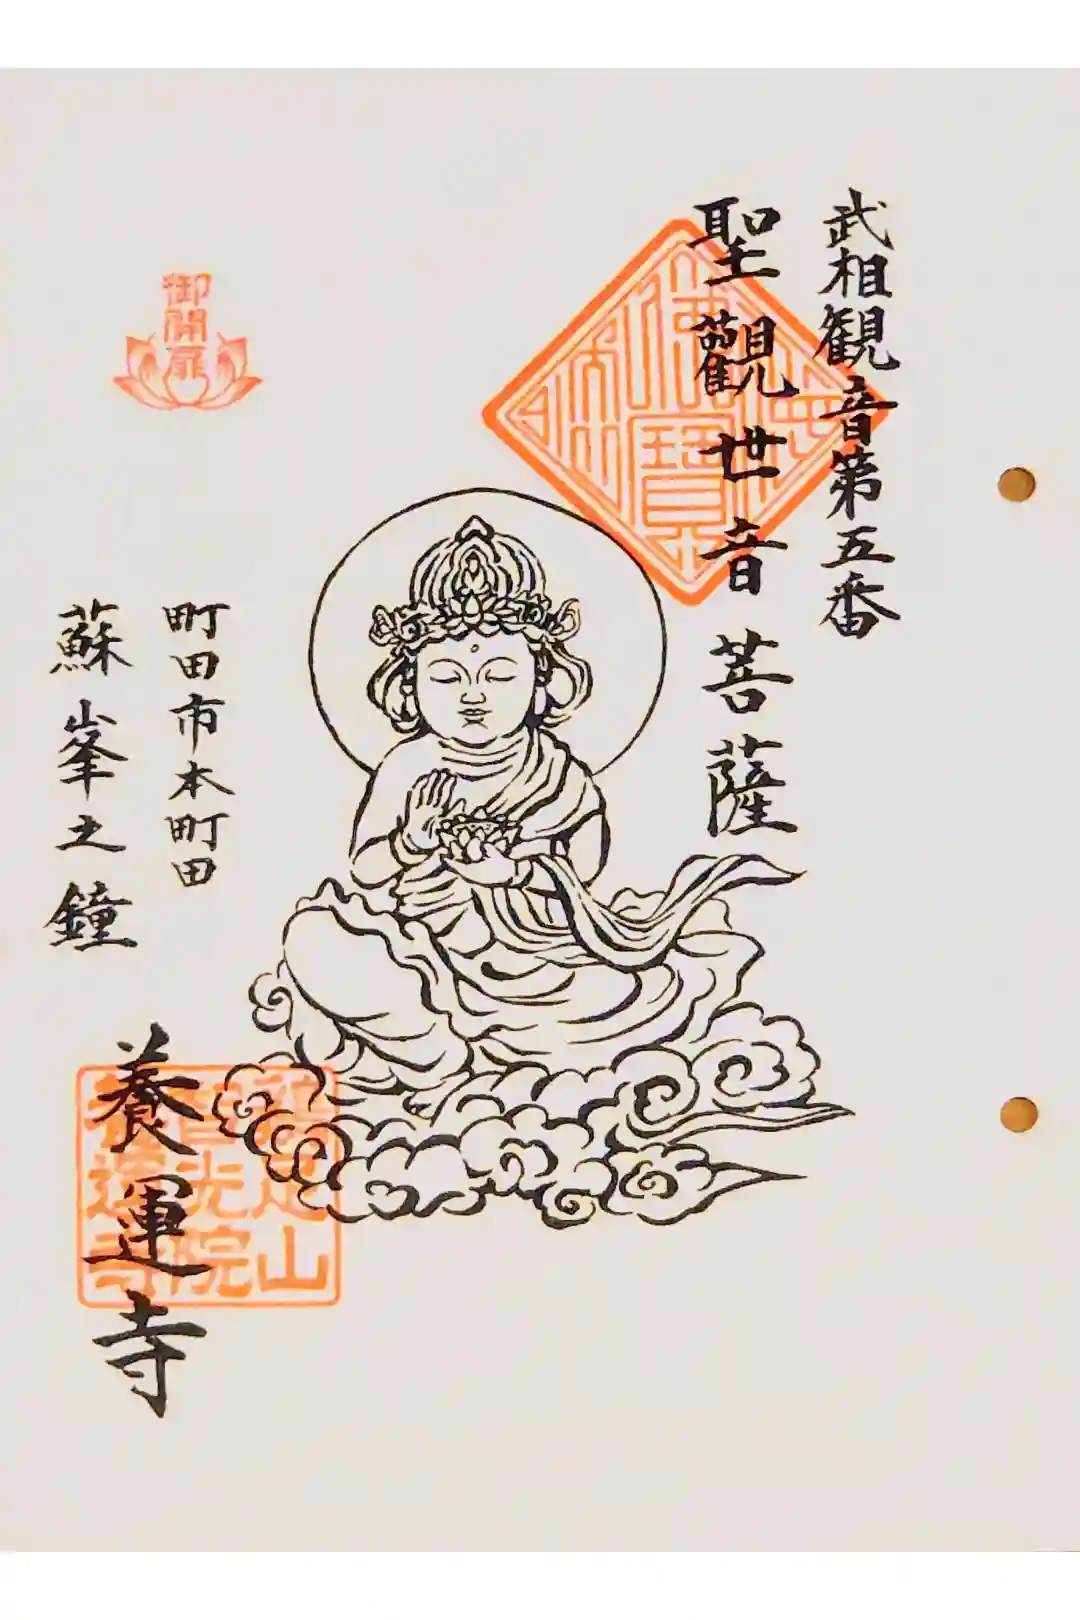 武相観音第五番
聖觀世音菩薩
佛法僧寶
御開扉
町田市本町田
蘇峯之鐘
養運寺
山
光院
養運寺